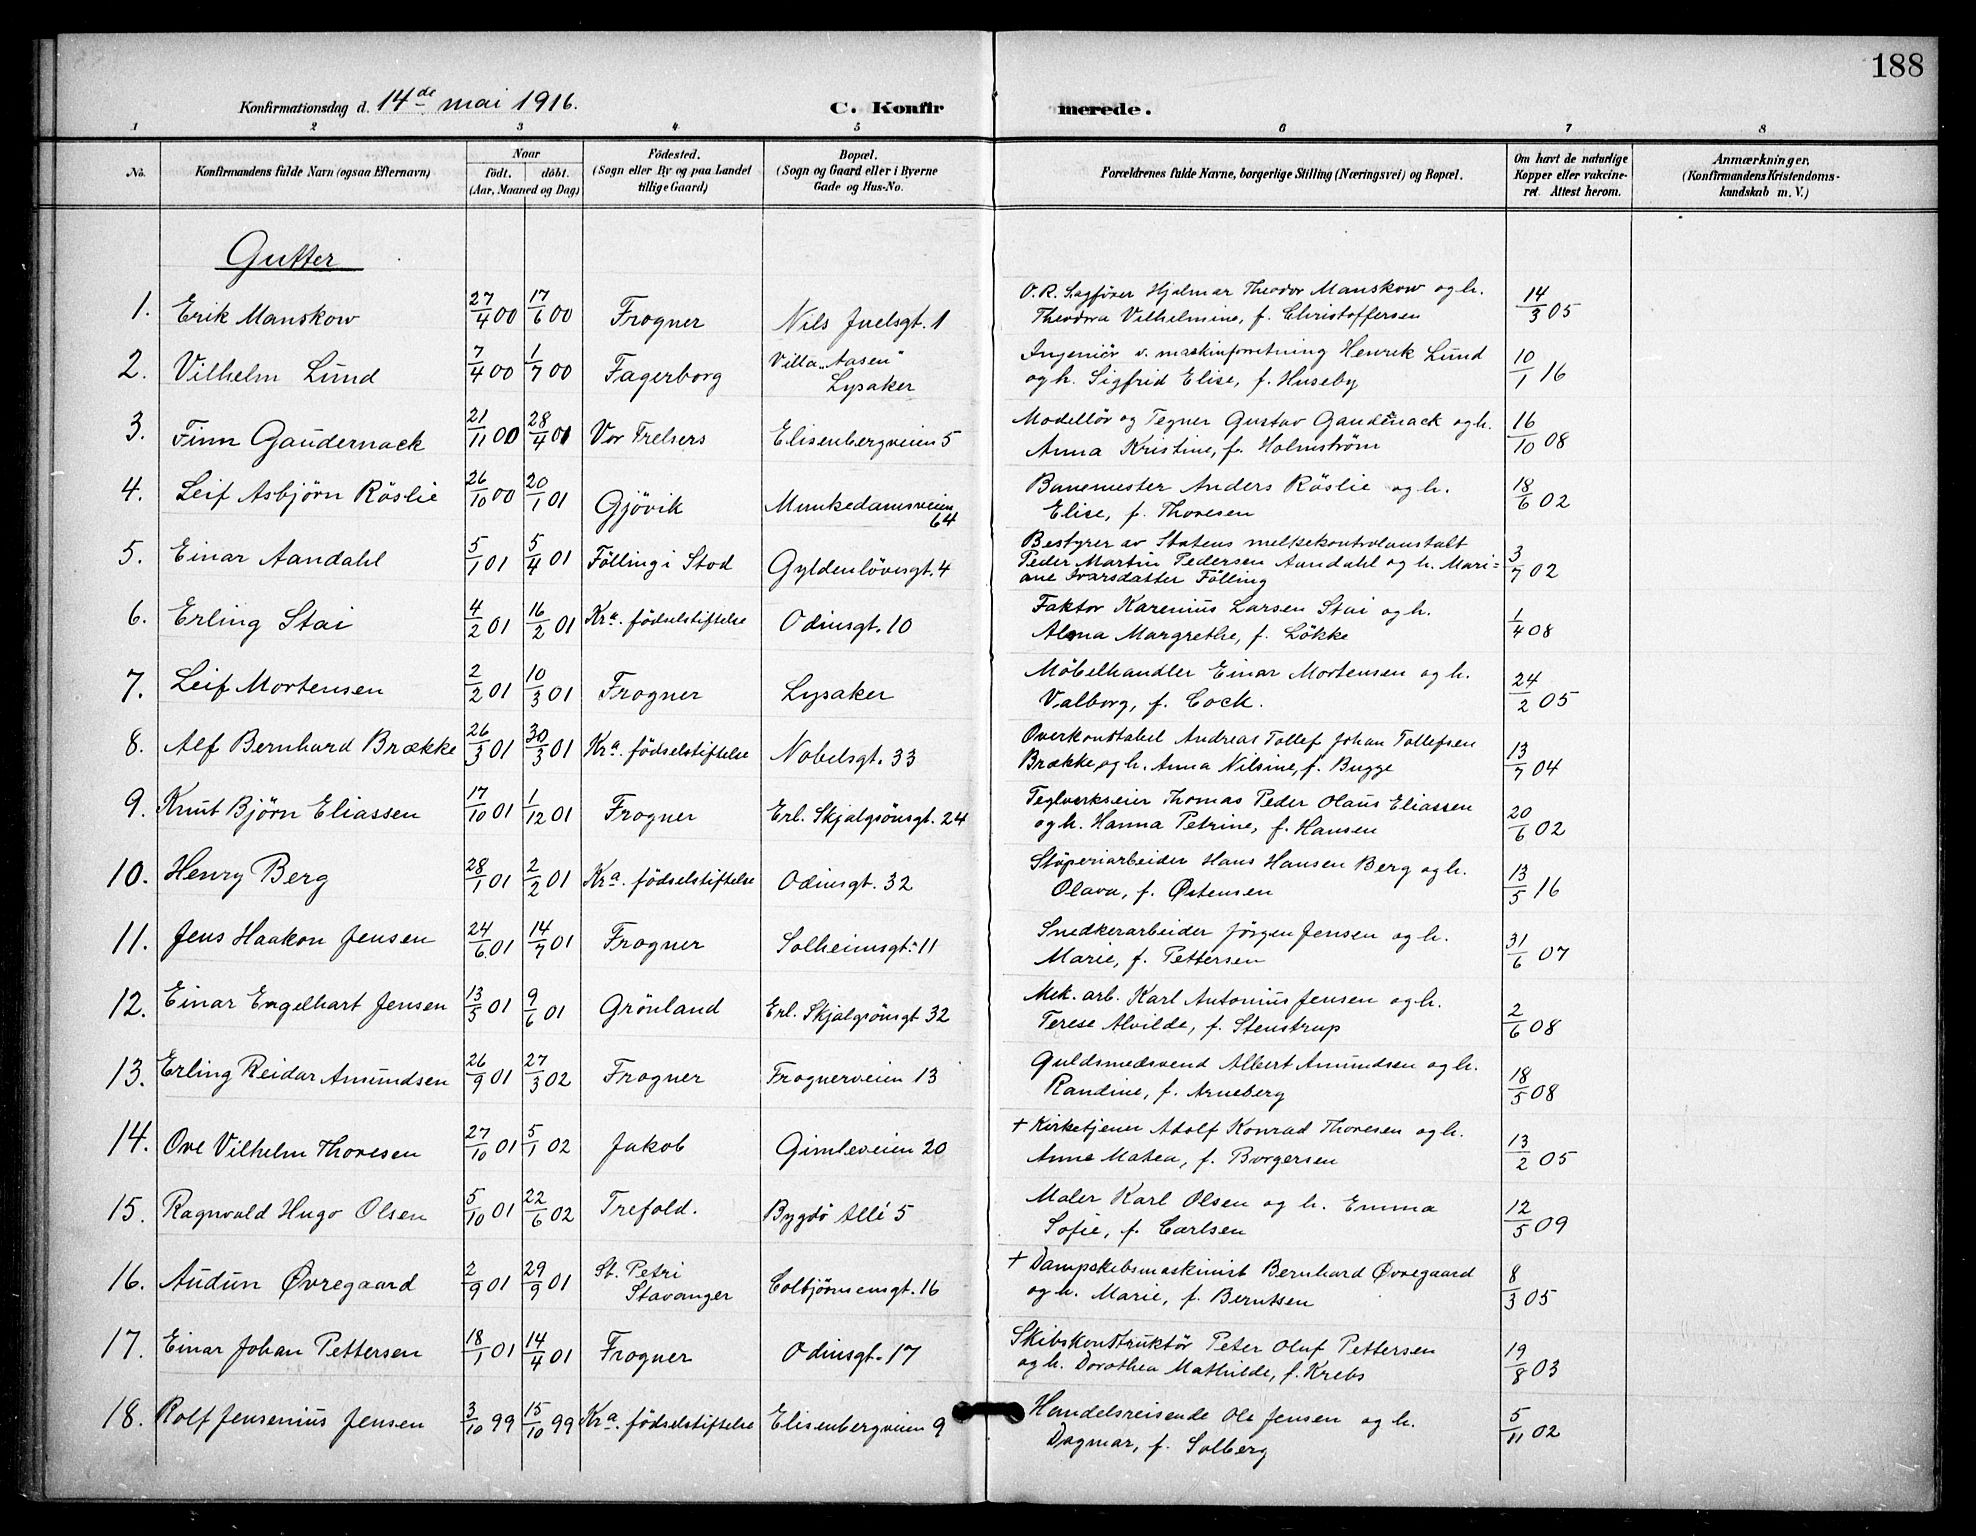 188
Konfirmationsdag d. 14de mai 1916. C. Konfirmerede.
1 2 3 4 5 6 7 8
No. Konfirmandens fulde Navn (ogsaa Efternavn) Naar født. døbt. (Aar, Maaned og Dag) Fødested. (Sogn eller By og paa Landet tillige Gaard) Bopæl. (Sogn og Gaard eller i Byerne Gade og Hus-No. Forældrenes fulde Navne, borgerlige Stilling (Næringsvei) og Bopæl. Om havt de naturlige Kopper eller vakcineret. Attest herom. Anmærkninger, (Konfirmandens Kristendomskundskab m. V.)
Gutter
1. Erik Manskow 27/4 00 17/6 00 Frogner Nils Juelsgt. 1 O.R. Sagfører Hjalmar Theodor Manskow og h. Theodora Vilhelmine, f. Christoffersen 14/3 05
2. Vilhelm Lund 7/4 00 1/7 00 Fagerborg Villa „Aasen" Lysaker Ingeniør v. maskinforretning Henrik Lund og h. Sigfrid Elise, f. Huseby 10/1 16
3. Finn Gaudernack 21/11 00 28/4 01 Vor Frelsers Elisenbergveien 5 Modellør og Tegner Gustav Gaudernack og h. Anna Kristine, f. Holmstrøm 16/10 08
4. Leif Asbjørn Röslie 26/10 00 20/1 01 Gjövik Munkedamsveien 64 Banemester Anders Röslie og h. Elise, f. Thoresen 18/6 02
5. Einar Aandahl 5/1 01 5/4 01 Fölling i Stod Gyldenlövesgt. 4 Bestyrer av Statens melkekontrolanstalt Peder Martin Pedersen Aandahl og h. Mariane Ivarsdatter Fölling 3/7 02
6. Erling Stai 4/2 01 16/2 01 Kra. födselstiftelse Odinsgt. 10 Faktor Karenius Larsen Stai og h. Alma Margrethe, f. Lökke 1/4 08
7. Leif Mortensen 2/2 01 10/3 01 Frogner Lysaker Möbelhandler Einar Mortensen og h. Valborg, f. Cock. 24/2 05
8. Alf Bernhard Brække 26/3 01 30/3 01 Kra. födselstiftelse Nobelsgt. 33 Overkonstabel Andreas Tollef Johan Tollefsen Brække, og h. Anna Nilsine, f. Bugge 13/7 04
9. Knut Björn Eliassen 17/10 01 1/12 01 Frogner Erl. Skjalgsönsgt. 24 Teglverkseier Thomas Peder Olaus Eliassen og h. Hanna Petrine, f. Hansen 20/6 02
10. Henry Berg 28/1 01 2/2 01 Kra. födselstiftelse Odinsgt. 32 Stöperiarbeider Hans Hansen Berg og h. Olava, f. Østensen 13/5 16
11. Jens Haakon Jensen 24/6 01 14/7 01 Frogner Solheimsgt. 11 Snedkerarbeider Jörgen Jensen og h. Marie, f. Pettersen 31/6 07
12. Einar Engelhart Jensen 13/5 01 9/6 01 Grönland Erl. Skjalgsönsgt 32 Mek. arb. Karl Antonius Jensen og h. Terese Alvilde, f. Stenstrup 2/6 08
13. Erling Reidar Amundsen 26/9 01 27/3 02 Frogner Frognerveien 13 Guldsmedsvend Albert Amundsen og h. Randine, f. Arneberg 18/5 08
14. Ove Vilhelm Thoresen 27/10 01 5/1 02 Jakob Gimleveien 20 + Kirketjener Adolf Konrad Thoresen og h. Anne Matea, f. Borgersen 13/2 05
15. Ragnvald Hugo Olsen 5/10 01 22/6 02 Trefold. Bygdö Allé 5 Maler Karl Olsen og h. Emma Sofie, f. Carlsen 12/5 09
16. Audun Øvregaard 2/9 01 29/9 01 St. Petri Stavanger Colbjörnsensgt. 16 + Dampskibsmaskinist Bernhard Øvregaard og h. Marie, f. Berntsen 8/3 05
17. Einar Johan Pettersen 18/1 01 14/4 01 Frogner Odinsgt. 17 Skibskonstruktör Peter Oluf Pettersen og h. Dorothea Mathilde, f. Krebs 19/8 03
18. Rolf Jensenius Jensen 3/10 99 15/10 99 Kra. födselstiftelse Elisenbergveien 9 Handelsreisende Ole Jensen og h. Dagmar, f. Solberg 5/11 02